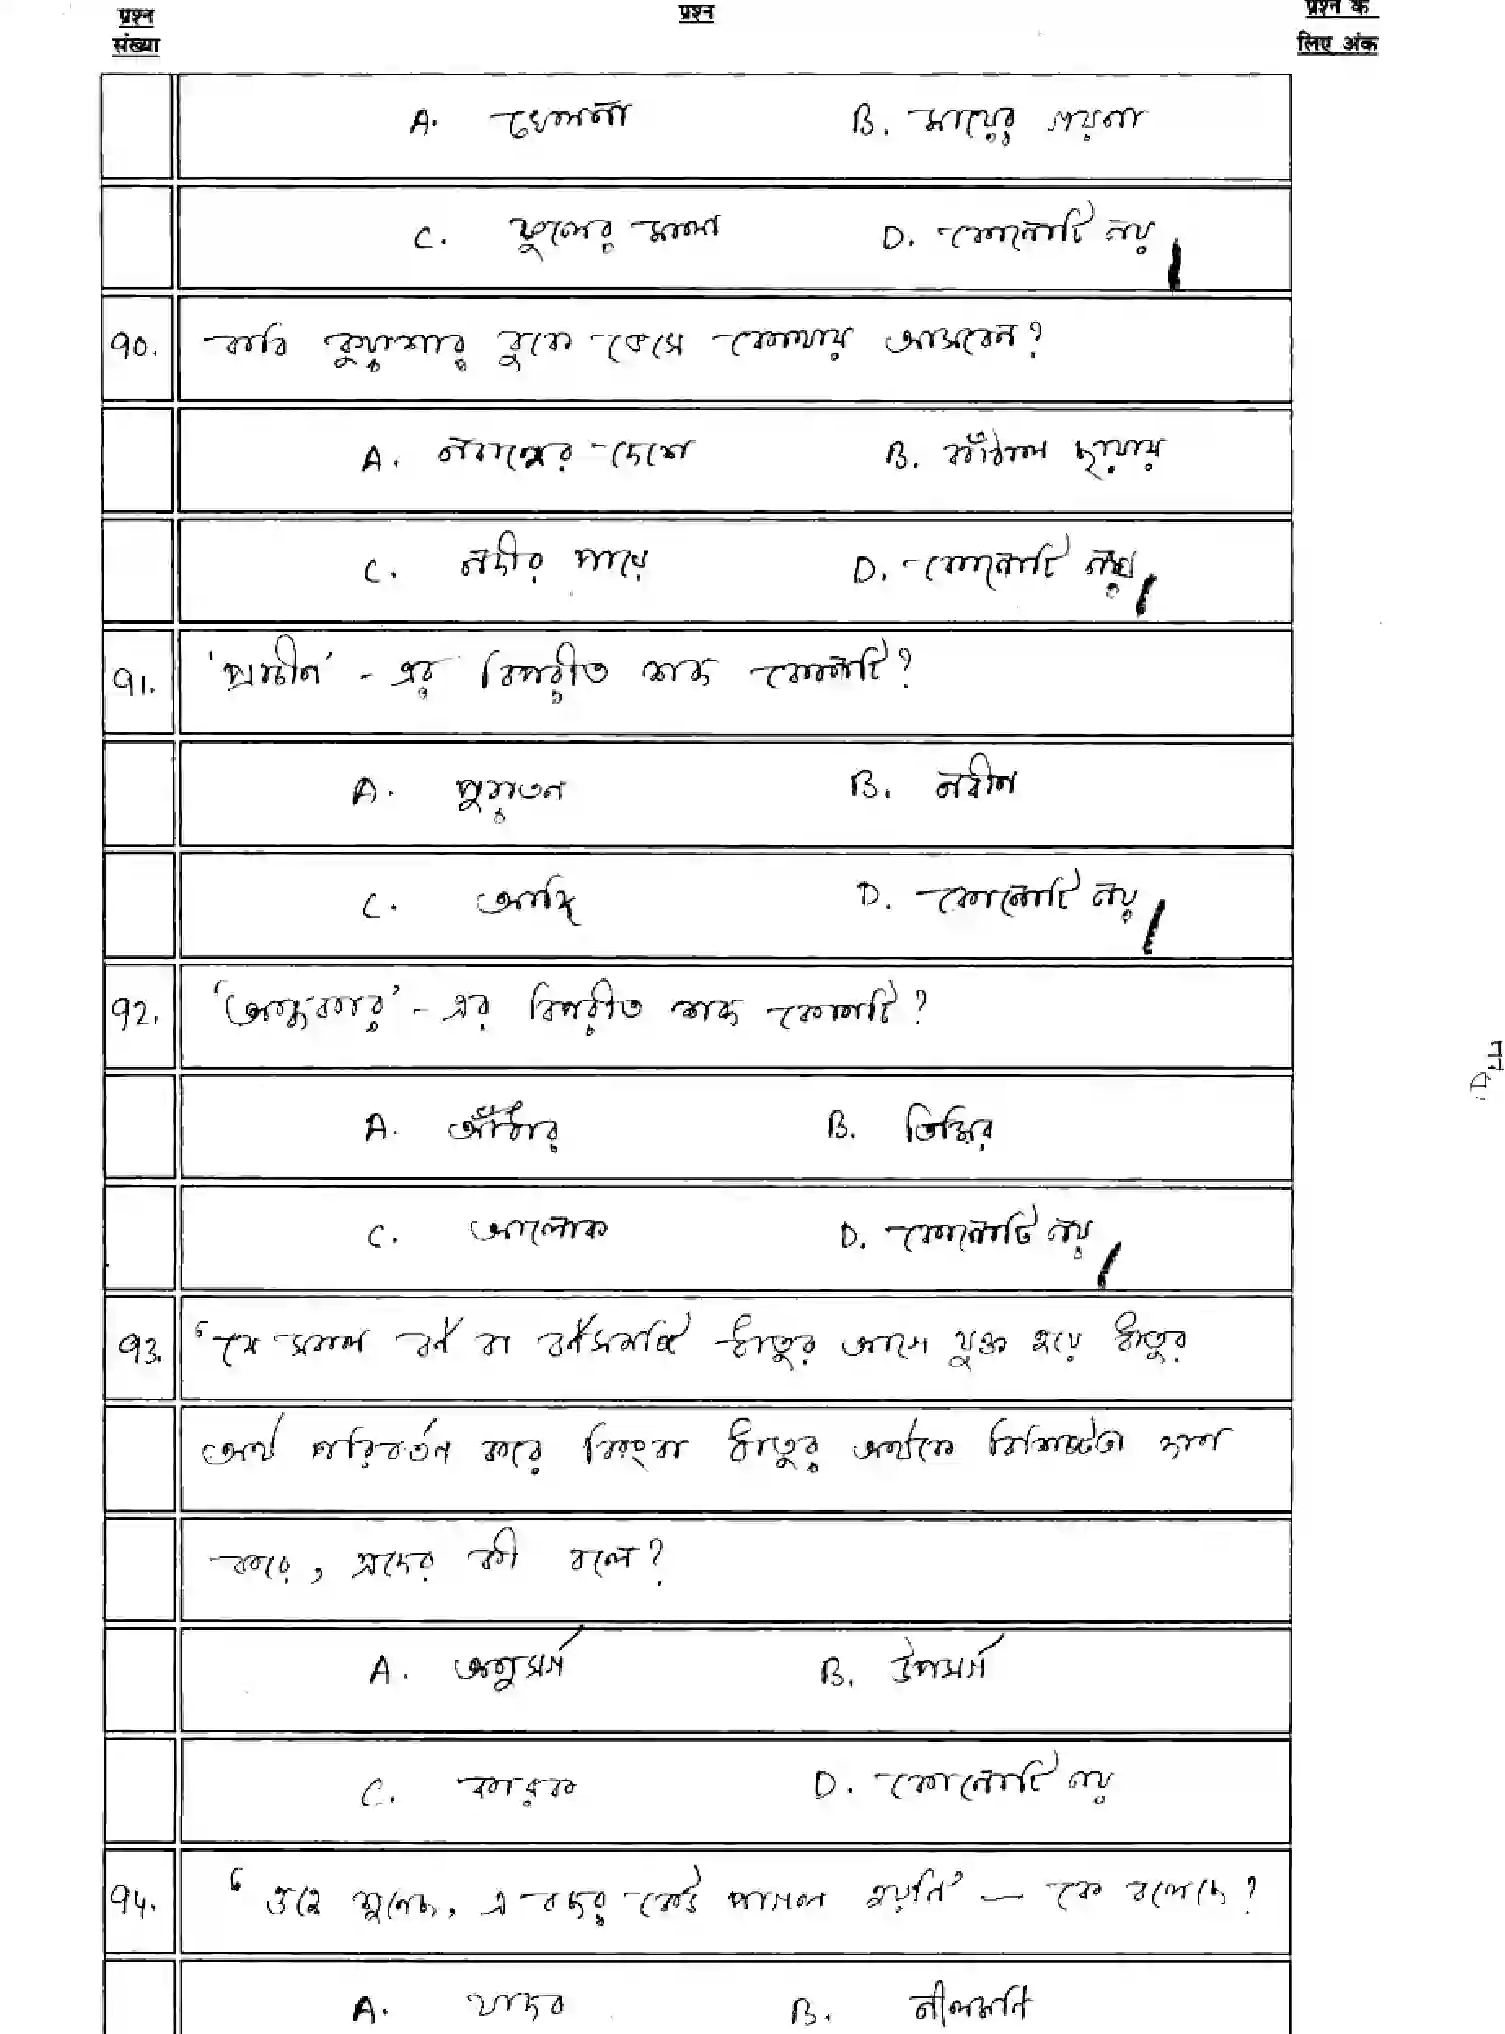 प्रश्न संख्या प्रश्न प्रश्न के लिए अंक
A. খেলনা B. মায়ের গয়না
C. ফুলের মালা D. কোনোটি নয়
90. কবি কুয়াশার বুকে ভেসে কোথায় আসবেন?
A. নবান্নের দেশে B. কাঁঠাল ছায়ায়
C. নদীর পাড়ে D. কোনোটি নয়
91. 'প্রাচীন' - এর বিপরীত শব্দ কোনটি?
A. পুরাতন B. নবীন
C. আদি D. কোনোটি নয়
92. 'অন্ধকার' - এর বিপরীত শব্দ কোনটি?
A. আঁধার B. তিমির
C. আলোক D. কোনোটি নয়
93. 'যে সকল বর্ণ বা বর্ণসমষ্টি ধাতুর আগে যুক্ত হয়ে ধাতুর
অর্থ পরিবর্তন করে কিংবা ধাতুর অর্থকে বিশিষ্টতা দান
করে, তাদের কী বলে?
A. অনুসর্গ B. উপসর্গ
C. কারক D. কোনোটি নয়
94. ' ওরে শুনেছ, এ বছর কেউ পাগল হয়নি' — কে বলেছে?
A. যাদব B. নীলমনি